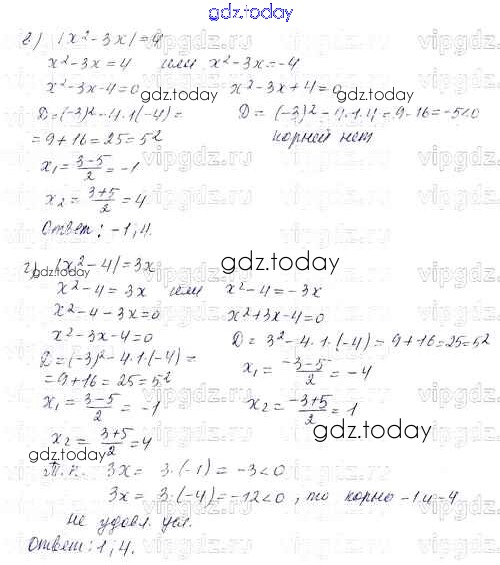 gdz.today
в) |x²-3x|=4
x²-3x=4 или x²-3x=-4
x²-3x-4=0 x²-3x+4=0
D=(-3)²-4·1·(-4)= D=(-3)²-4·1·4=9-16=-5<0
=9+16=25=5² корней нет
x₁=(3-5)/2=-1
x₂=(3+5)/2=4
Ответ: -1; 4.
г) |x²-4|=3x
x²-4=3x или x²-4=-3x
x²-4-3x=0 x²+3x-4=0
x²-3x-4=0 D=3²-4·1·(-4)=9+16=25=5²
D=(-3)²-4·1·(-4)= x₁=(-3-5)/2=-4
=9+16=25=5²
x₁=(3-5)/2=-1 x₂=(-3+5)/2=1
x₂=(3+5)/2=4
Т.к. 3x=3·(-1)=-3<0
3x=3·(-4)=-12<0, то корно -1 и -4
не удовл. усл.
Ответ: 1; 4.
gdz.today
gdz.today
gdz.today
gdz.today
gdz.today
gdz.today
gdz.today
gdz.today